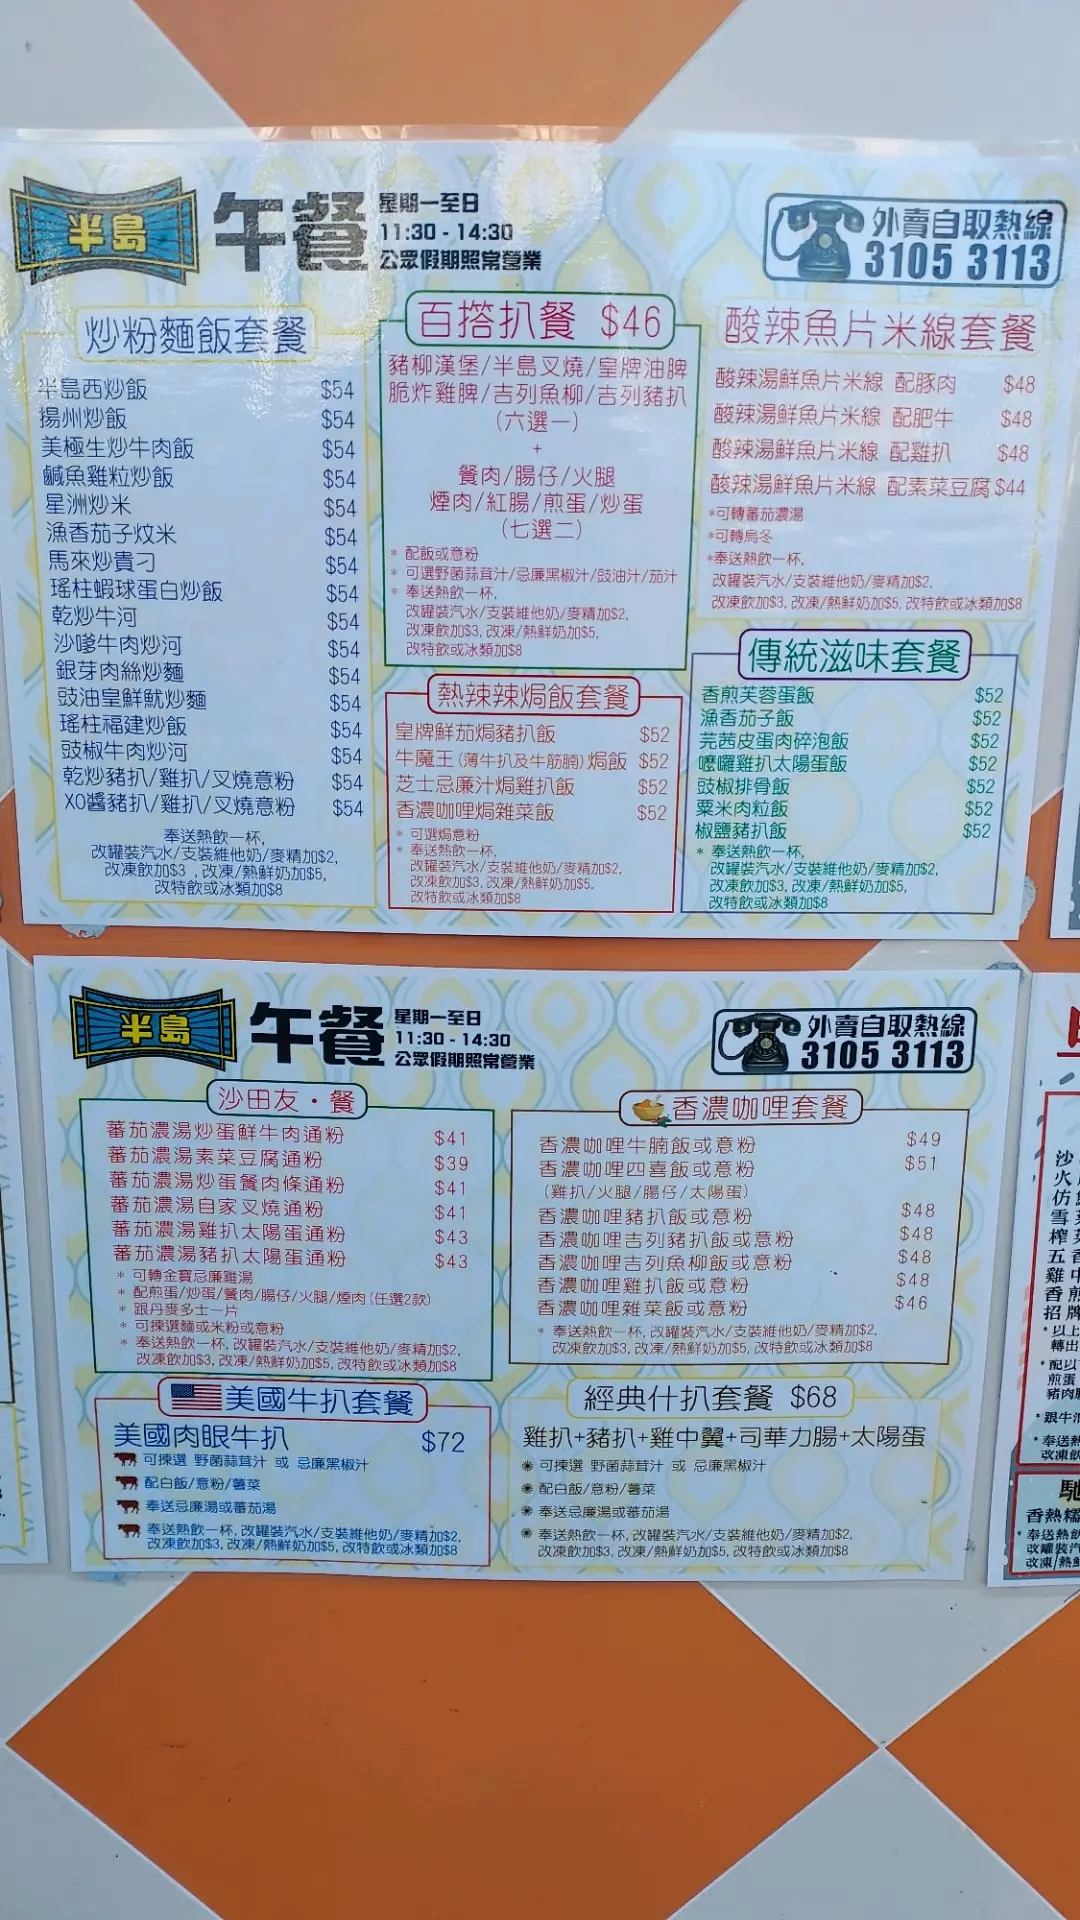 半島
午餐
星期一至日
11:30 - 14:30
公眾假期照常營業
外賣自取熱線
3105 3113
炒粉麵飯套餐
半島西炒飯 $54
揚州炒飯 $54
美極生炒牛肉飯 $54
鹹魚雞粒炒飯 $54
星洲炒米 $54
漁香茄子炆米 $54
馬來炒貴刁 $54
瑤柱蝦球蛋白炒飯 $54
乾炒牛河 $54
沙嗲牛肉炒河 $54
銀芽肉絲炒麵 $54
豉油皇鮮魷炒麵 $54
瑤柱福建炒飯 $54
豉椒牛肉炒河 $54
乾炒豬扒/雞扒/叉燒意粉 $54
XO醬豬扒/雞扒/叉燒意粉 $54
奉送熱飲一杯,
改罐裝汽水/支裝維他奶/麥精加$2,
改凍飲加$3 , 改凍/熱鮮奶加$5,
改特飲或冰類加$8
百撘扒餐 $46
豬柳漢堡/半島叉燒/皇牌油脾
脆炸雞脾/吉列魚柳/吉列豬扒
(六選一)
+
餐肉/腸仔/火腿
煙肉/紅腸/煎蛋/炒蛋
(七選二)
* 配飯或意粉
* 可選野菌蒜茸汁/忌廉黑椒汁/豉油汁/茄汁
* 奉送熱飲一杯,
改罐裝汽水/支裝維他奶/麥精加$2,
改凍飲加$3, 改凍/熱鮮奶加$5,
改特飲或冰類加$8
熱辣辣焗飯套餐
皇牌鮮茄焗豬扒飯 $52
牛魔王(薄牛扒及牛筋腩)焗飯 $52
芝士忌廉汁焗雞扒飯 $52
香濃咖哩焗雜菜飯 $52
* 可選焗意粉
* 奉送熱飲一杯,
改罐裝汽水/支裝維他奶/麥精加$2,
改凍飲加$3, 改凍/熱鮮奶加$5,
改特飲或冰類加$8
酸辣魚片米線套餐
酸辣湯鮮魚片米線 配豚肉 $48
酸辣湯鮮魚片米線 配肥牛 $48
酸辣湯鮮魚片米線 配雞扒 $48
酸辣湯鮮魚片米線 配素菜豆腐 $44
*可轉蕃茄濃湯
*可轉烏冬
*奉送熱飲一杯,
改罐裝汽水/支裝維他奶/麥精加$2,
改凍飲加$3, 改凍/熱鮮奶加$5, 改特飲或冰類加$8
傳統滋味套餐
香煎芙蓉蛋飯 $52
漁香茄子飯 $52
芫茜皮蛋肉碎泡飯 $52
嚤囉雞扒太陽蛋飯 $52
豉椒排骨飯 $52
粟米肉粒飯 $52
椒鹽豬扒飯 $52
* 奉送熱飲一杯,
改罐裝汽水/支裝維他奶/麥精加$2,
改凍飲加$3, 改凍/熱鮮奶加$5,
改特飲或冰類加$8
半島
午餐
星期一至日
11:30 - 14:30
公眾假期照常營業
外賣自取熱線
3105 3113
沙田友・餐
蕃茄濃湯炒蛋鮮牛肉通粉 $41
蕃茄濃湯素菜豆腐通粉 $39
蕃茄濃湯炒蛋餐肉條通粉 $41
蕃茄濃湯自家叉燒通粉 $41
蕃茄濃湯雞扒太陽蛋通粉 $43
蕃茄濃湯豬扒太陽蛋通粉 $43
* 可轉金寶忌廉雞湯
* 配煎蛋/炒蛋/餐肉/腸仔/火腿/煙肉(任選2款)
* 跟丹麥多士一片
* 可揀選麵或米粉或意粉
* 奉送熱飲一杯, 改罐裝汽水/支裝維他奶/麥精加$2,
改凍飲加$3, 改凍/熱鮮奶加$5, 改特飲或冰類加$8
香濃咖哩套餐
香濃咖哩牛腩飯或意粉 $49
香濃咖哩四喜飯或意粉 $51
(雞扒/火腿/腸仔/太陽蛋)
香濃咖哩豬扒飯或意粉 $48
香濃咖哩吉列豬扒飯或意粉 $48
香濃咖哩吉列魚柳飯或意粉 $48
香濃咖哩雞扒飯或意粉 $48
香濃咖哩雜菜飯或意粉 $46
* 奉送熱飲一杯, 改罐裝汽水/支裝維他奶/麥精加$2,
改凍飲加$3, 改凍/熱鮮奶加$5, 改特飲或冰類加$8
美國牛扒套餐
美國肉眼牛扒 $72
可揀選 野菌蒜茸汁 或 忌廉黑椒汁
配白飯/意粉/薯菜
奉送忌廉湯或蕃茄湯
奉送熱飲一杯, 改罐裝汽水/支裝維他奶/麥精加$2,
改凍飲加$3, 改凍/熱鮮奶加$5, 改特飲或冰類加$8
經典什扒套餐 $68
雞扒+豬扒+雞中翼+司華力腸+太陽蛋
可揀選 野菌蒜茸汁 或 忌廉黑椒汁
配白飯/意粉/薯菜
奉送忌廉湯或蕃茄湯
奉送熱飲一杯, 改罐裝汽水/支裝維他奶/麥精加$2,
改凍飲加$3, 改凍/熱鮮奶加$5, 改特飲或冰類加$8
沙
火
仿
雪
榨
五香
雞中
香煎
招牌
*以上
轉出
*配以
煎蛋
豬肉
*跟牛
*奉送熱
改凍飲
馳
香熱糯
*奉送熱飲
改罐裝汽
改凍/熱鮮